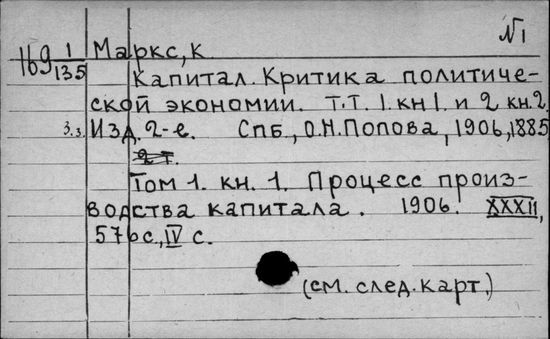 N1
169 1/135 Маркс, К.
Капитал. Критика политиче-
ской экономии. Т.Т. 1. кн 1. и 2 кн.2.
3.3. Изд. 2-е. Спб., О.Н.Попова, 1906, 1885
2 т.
Том 1. кн. 1. Процесс произ-
водства капитала. 1906. XXXII,
576 с., IV с.
(см. след. карт.)